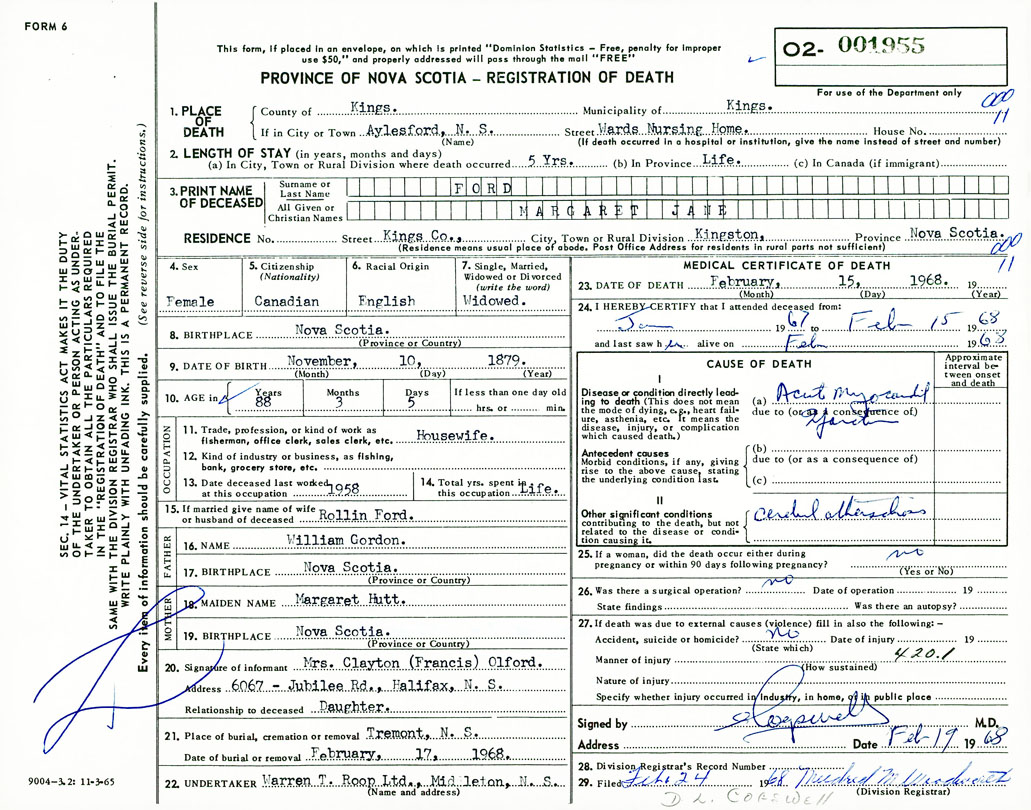 FORM 6
This form, if placed in an envelope, on which is printed "Dominion Statistics – Free, penalty for improper
use $50," and properly addressed will pass through the mail "FREE"
PROVINCE OF NOVA SCOTIA – REGISTRATION OF DEATH
O2- 001955
For use of the Department only
000
11
SEC. 14 – VITAL STATISTICS ACT MAKES IT THE DUTY
OF THE UNDERTAKER OR PERSON ACTING AS UNDER-
TAKER TO OBTAIN ALL THE PARTICULARS REQUIRED
IN THE "REGISTRATION OF DEATH" AND TO FILE THE
SAME WITH THE DIVISION REGISTRAR WHO SHALL ISSUE THE BURIAL PERMIT.
WRITE PLAINLY WITH UNFADING INK. THIS IS A PERMANENT RECORD.
Every item of information should be carefully supplied. (See reverse side for instructions.)
1. PLACE OF DEATH
County of Kings. Municipality of Kings.
If in City or Town Aylesford, N. S. Street Wards Nursing Home. House No.
(Name) (If death occurred in a hospital or institution, give the name instead of street and number)
2. LENGTH OF STAY (in years, months and days)
(a) In City, Town or Rural Division where death occurred 5 Yrs. (b) In Province Life. (c) In Canada (if immigrant)
3. PRINT NAME OF DECEASED
Surname or Last Name FORD
All Given or Christian Names MARGARET JANE
RESIDENCE No. Street Kings Co., City, Town or Rural Division Kingston, Province Nova Scotia.
(Residence means usual place of abode. Post Office Address for residents in rural parts not sufficient)
000
11
4. Sex
Female
5. Citizenship (Nationality)
Canadian
6. Racial Origin
English
7. Single, Married, Widowed or Divorced (write the word)
Widowed.
8. BIRTHPLACE Nova Scotia.
(Province or Country)
9. DATE OF BIRTH November, 10, 1879.
(Month) (Day) (Year)
10. AGE in Years Months Days If less than one day old
88 3 5 hrs. or min.
OCCUPATION
11. Trade, profession, or kind of work as
fisherman, office clerk, sales clerk, etc. Housewife.
12. Kind of industry or business, as fishing,
bank, grocery store, etc.
13. Date deceased last worked at this occupation 1958
14. Total yrs. spent in this occupation Life.
15. If married give name of wife
or husband of deceased Rollin Ford.
FATHER
16. NAME William Gordon.
17. BIRTHPLACE Nova Scotia.
(Province or Country)
MOTHER
18. MAIDEN NAME Margaret Hutt.
19. BIRTHPLACE Nova Scotia.
(Province or Country)
20. Signature of informant Mrs. Clayton (Francis) Olford.
Address 6067 - Jubilee Rd., Halifax, N. S.
Relationship to deceased Daughter.
21. Place of burial, cremation or removal Tremont, N. S.
Date of burial or removal February, 17, 1968.
22. UNDERTAKER Warren T. Roop Ltd., Middleton, N. S.
(Name and address)
9004-3.2: 11-3-65
MEDICAL CERTIFICATE OF DEATH
23. DATE OF DEATH February, 15, 1968. 19
(Month) (Day) (Year)
24. I HEREBY CERTIFY that I attended deceased from:
Jan 1967 to Feb 15 1968
and last saw her alive on Feb 1968
CAUSE OF DEATH
Approximate interval between onset and death
I
Disease or condition directly lead-
ing to death (This does not mean
the mode of dying, e.g., heart fail-
ure, asthenia, etc. It means the
disease, injury, or complication
which caused death.)
(a) Acute Myocardial
due to (or as a consequence of)
Antecedent causes
Morbid conditions, if any, giving
rise to the above cause, stating
the underlying condition last.
(b)
due to (or as a consequence of)
(c)
II
Other significant conditions
contributing to the death, but not
related to the disease or condi-
tion causing it.
cerebral
25. If a woman, did the death occur either during
pregnancy or within 90 days following pregnancy? no
(Yes or No)
26. Was there a surgical operation? no Date of operation 19
State findings Was there an autopsy?
27. If death was due to external causes (violence) fill in also the following: –
Accident, suicide or homicide? no Date of injury 19
(State which)
Manner of injury 420.1
(How sustained)
Nature of injury
Specify whether injury occurred in industry, in home, or in public place
Signed by M.D.
Address Date Feb 19 1968
28. Division Registrar's Record Number
29. Filed Feb. 24 1968
(Division Registrar)